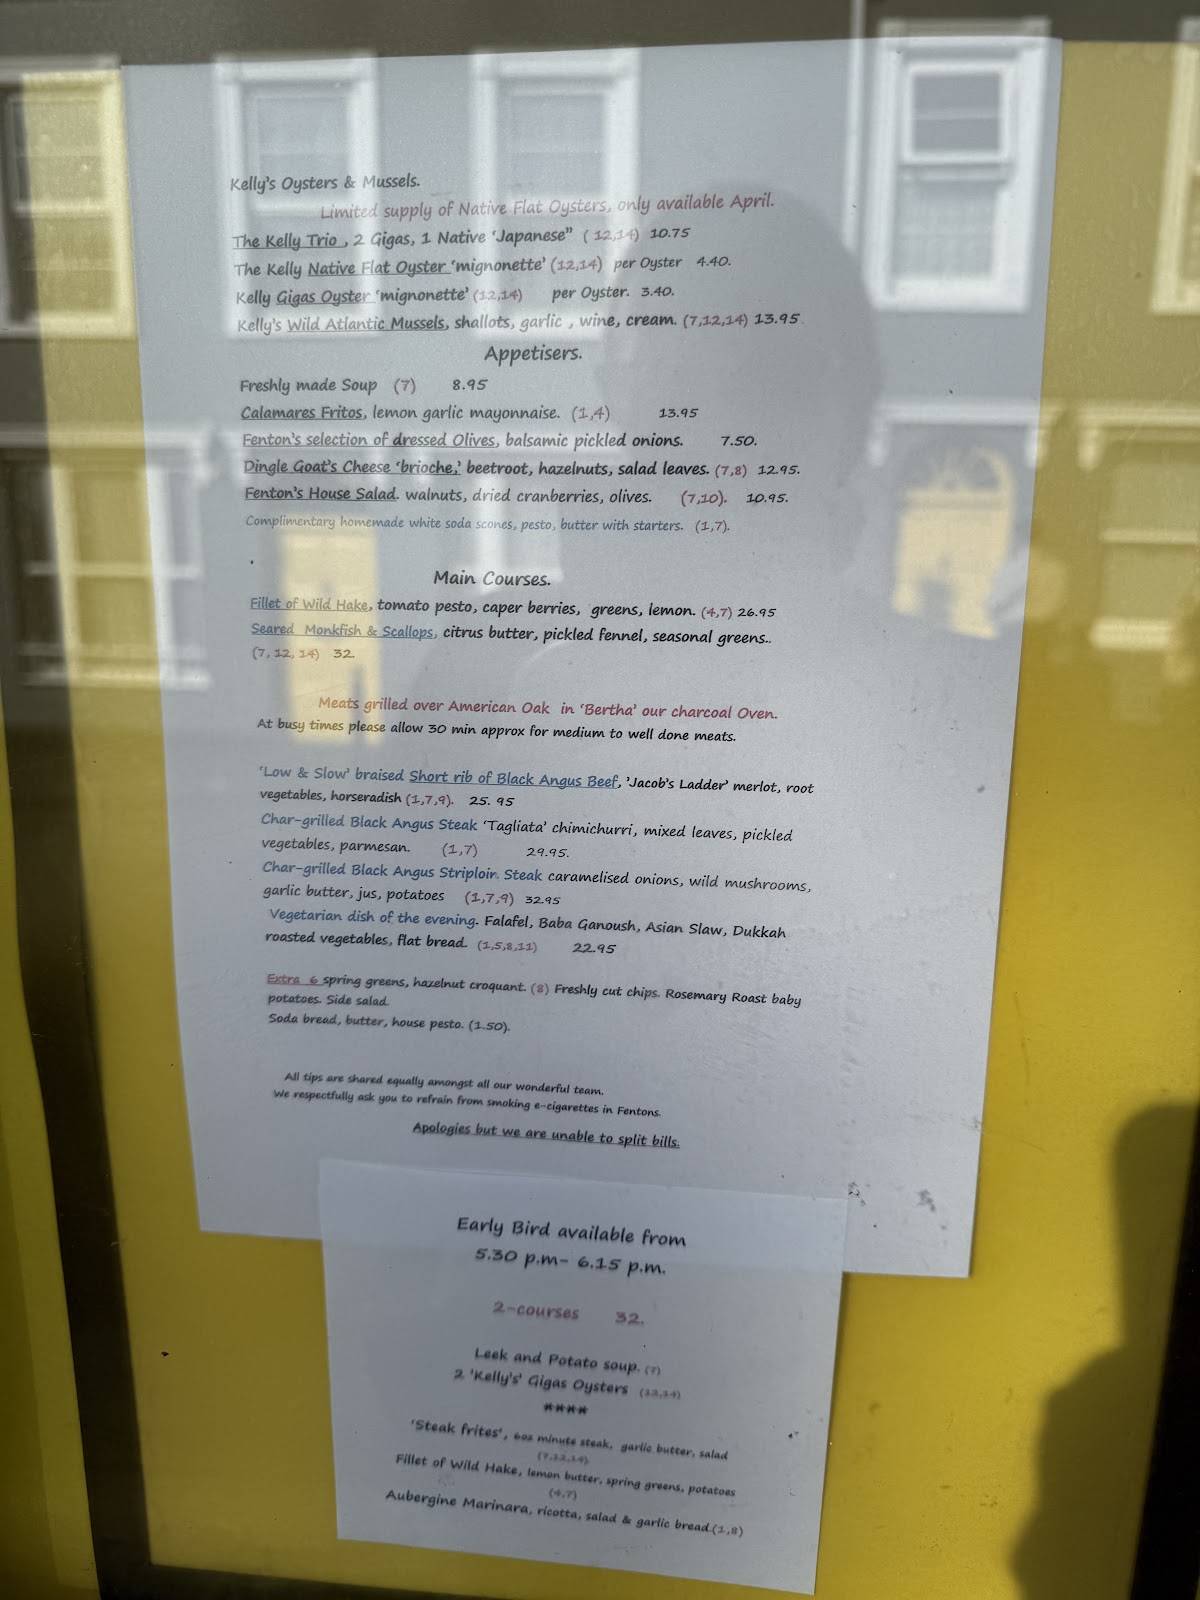 Kelly's Oysters & Mussels.
Limited supply of Native Flat Oysters, only available April.
The Kelly Trio , 2 Gigas, 1 Native 'Japanese" ( 12,14) 10.75
The Kelly Native Flat Oyster 'mignonette' (12,14) per Oyster 4.40.
Kelly Gigas Oyster 'mignonette' (12,14) per Oyster. 3.40.
Kelly's Wild Atlantic Mussels, shallots, garlic , wine, cream. (7,12,14) 13.95
Appetisers.
Freshly made Soup (7) 8.95
Calamares Fritos, lemon garlic mayonnaise. (1,4) 13.95
Fenton's selection of dressed Olives, balsamic pickled onions. 7.50.
Dingle Goat's Cheese 'brioche,' beetroot, hazelnuts, salad leaves. (7,8) 12.95.
Fenton's House Salad. walnuts, dried cranberries, olives. (7,10). 10.95.
Complimentary homemade white soda scones, pesto, butter with starters. (1,7).
Main Courses.
Fillet of Wild Hake, tomato pesto, caper berries, greens, lemon. (4,7) 26.95
Seared Monkfish & Scallops, citrus butter, pickled fennel, seasonal greens..
(7, 12, 14) 32
Meats grilled over American Oak in 'Bertha' our charcoal Oven.
At busy times please allow 30 min approx for medium to well done meats.
'Low & Slow' braised Short rib of Black Angus Beef, 'Jacob's Ladder' merlot, root
vegetables, horseradish (1,7,9). 25. 95
Char-grilled Black Angus Steak 'Tagliata' chimichurri, mixed leaves, pickled
vegetables, parmesan. (1,7) 29.95.
Char-grilled Black Angus Striploin. Steak caramelised onions, wild mushrooms,
garlic butter, jus, potatoes (1,7,9) 32.95
Vegetarian dish of the evening. Falafel, Baba Ganoush, Asian Slaw, Dukkah
roasted vegetables, flat bread. (1,5,8,11) 22.95
Extra 6 spring greens, hazelnut croquant. (8) Freshly cut chips. Rosemary Roast baby
potatoes. Side salad.
Soda bread, butter, house pesto. (1.50).
All tips are shared equally amongst all our wonderful team.
We respectfully ask you to refrain from smoking e-cigarettes in Fentons.
Apologies but we are unable to split bills.
Early Bird available from
5.30 p.m- 6.15 p.m.
2-courses 32.
Leek and Potato soup. (7)
2 'Kelly's' Gigas Oysters (12,14)
****
'Steak frites', 6oz minute steak, garlic butter, salad
(7,12,14)
Fillet of Wild Hake, lemon butter, spring greens, potatoes
(4,7)
Aubergine Marinara, ricotta, salad & garlic bread.(1,8)